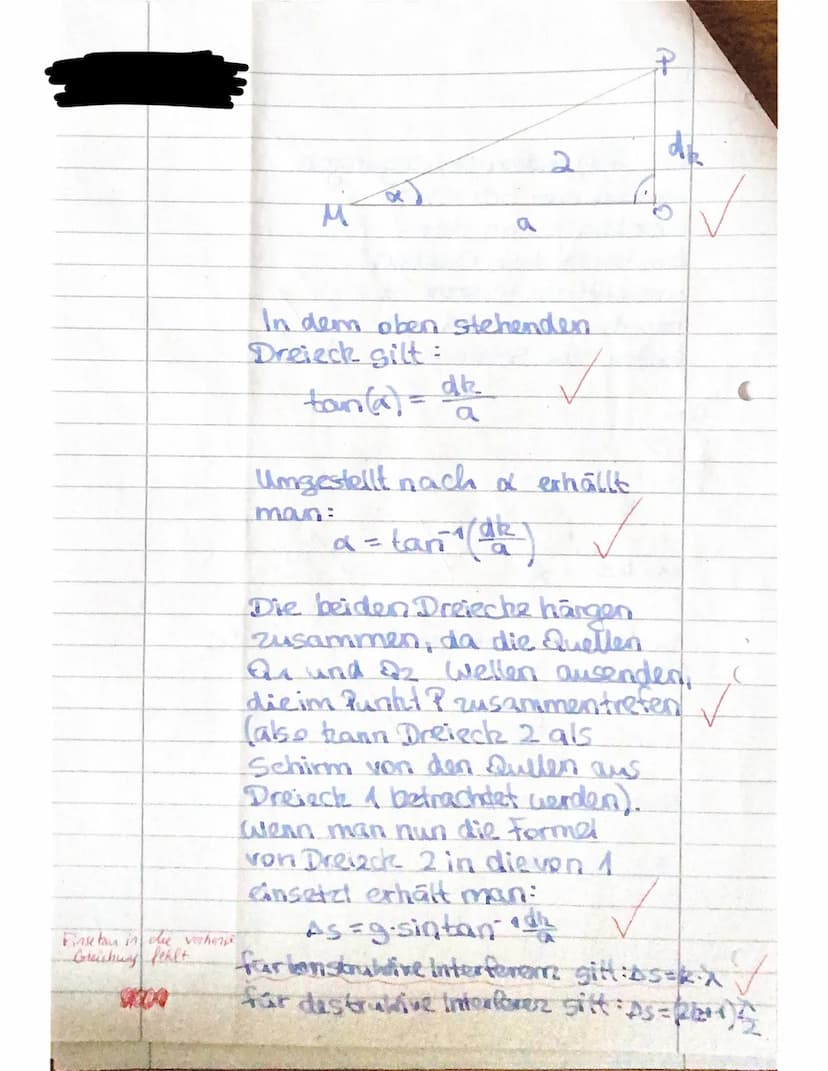 P
2
dk
α
M
a
O
In dem oben stehenden
Dreieck gilt:
tan(α) = dk/a
Umgestellt nach α erhällt
man:
α = tan⁻¹(dk/a)
Die beiden Dreiecke hängen
zusammen, da die Quellen
Q1 und Q2 Wellen ausenden,
die im Punkt P zusammentreffen
(also kann Dreieck 2 als
Schirm von den Qullen aus
Dreieck 1 betrachtet werden).
Wenn man nun die Formel
von Dreieck 2 in die von 1
einsetzt erhält man:
Δs = g·sin tan⁻¹ dk/a
Einsetzen in die vorherige
Gleichung fehlt
für konstruktive Interferenz gilt: Δs = k·λ
für destruktive Interferenz gilt: Δs = (2k+1) λ/2